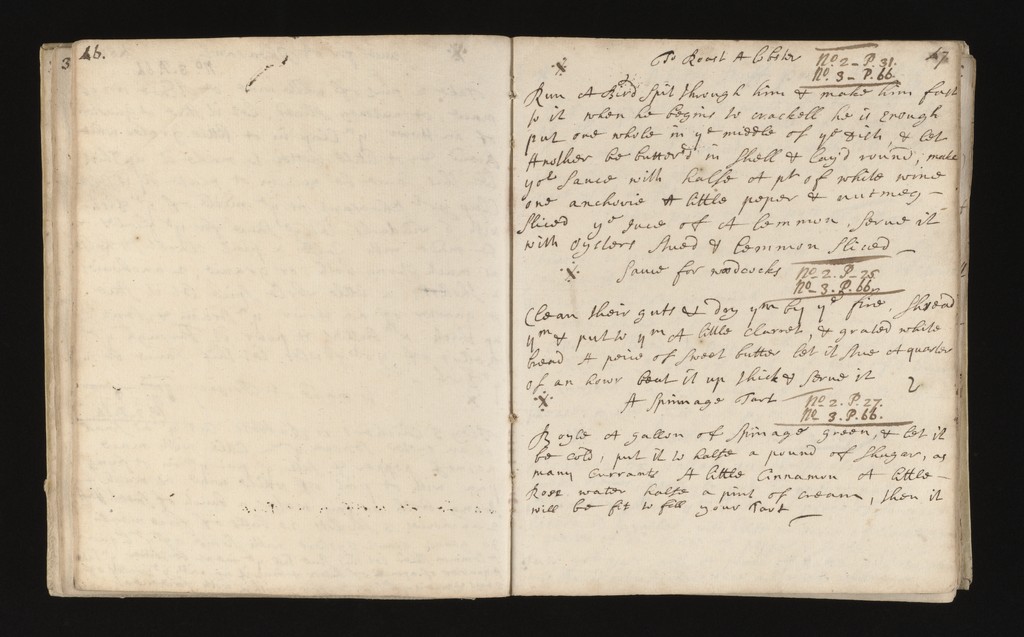 3
46.
To Roast A lobster
No 2 - P. 31.
No 3 - P. 66.
47
Run A Bird spit through him & make him fast
to it when he begins to crackell he is Enough
put one whole in ye middle of ye dish, & let
Another be butterd in shell & lay'd round, make
yor Sauce with halfe A pt of white wine
one anchovie A little peper & nutmeg -
sliced ye Juce of A Lemmon, serve it
with oysters stued & Lemmon sliced
Sauce for woodcocks
No 2. P - 28
No 3. P. 66.
Clean their guts & dry ym by ye fire, shread
ym & put to ym A little Clarret, & grated white
bread A peice of sweet butter let it stue A quarter
of an howr beat it up thick & serve it
A Spinnage Tart
No 2. P. 27.
No 3. P. 66.
Boyle A gallon of spinage green, & let it
be cold, put it to halfe a pound of shuger, as
many Currants A little Cinnamon A little -
Rose water halfe a pint of cream, then it
will be fit to fill your Tart